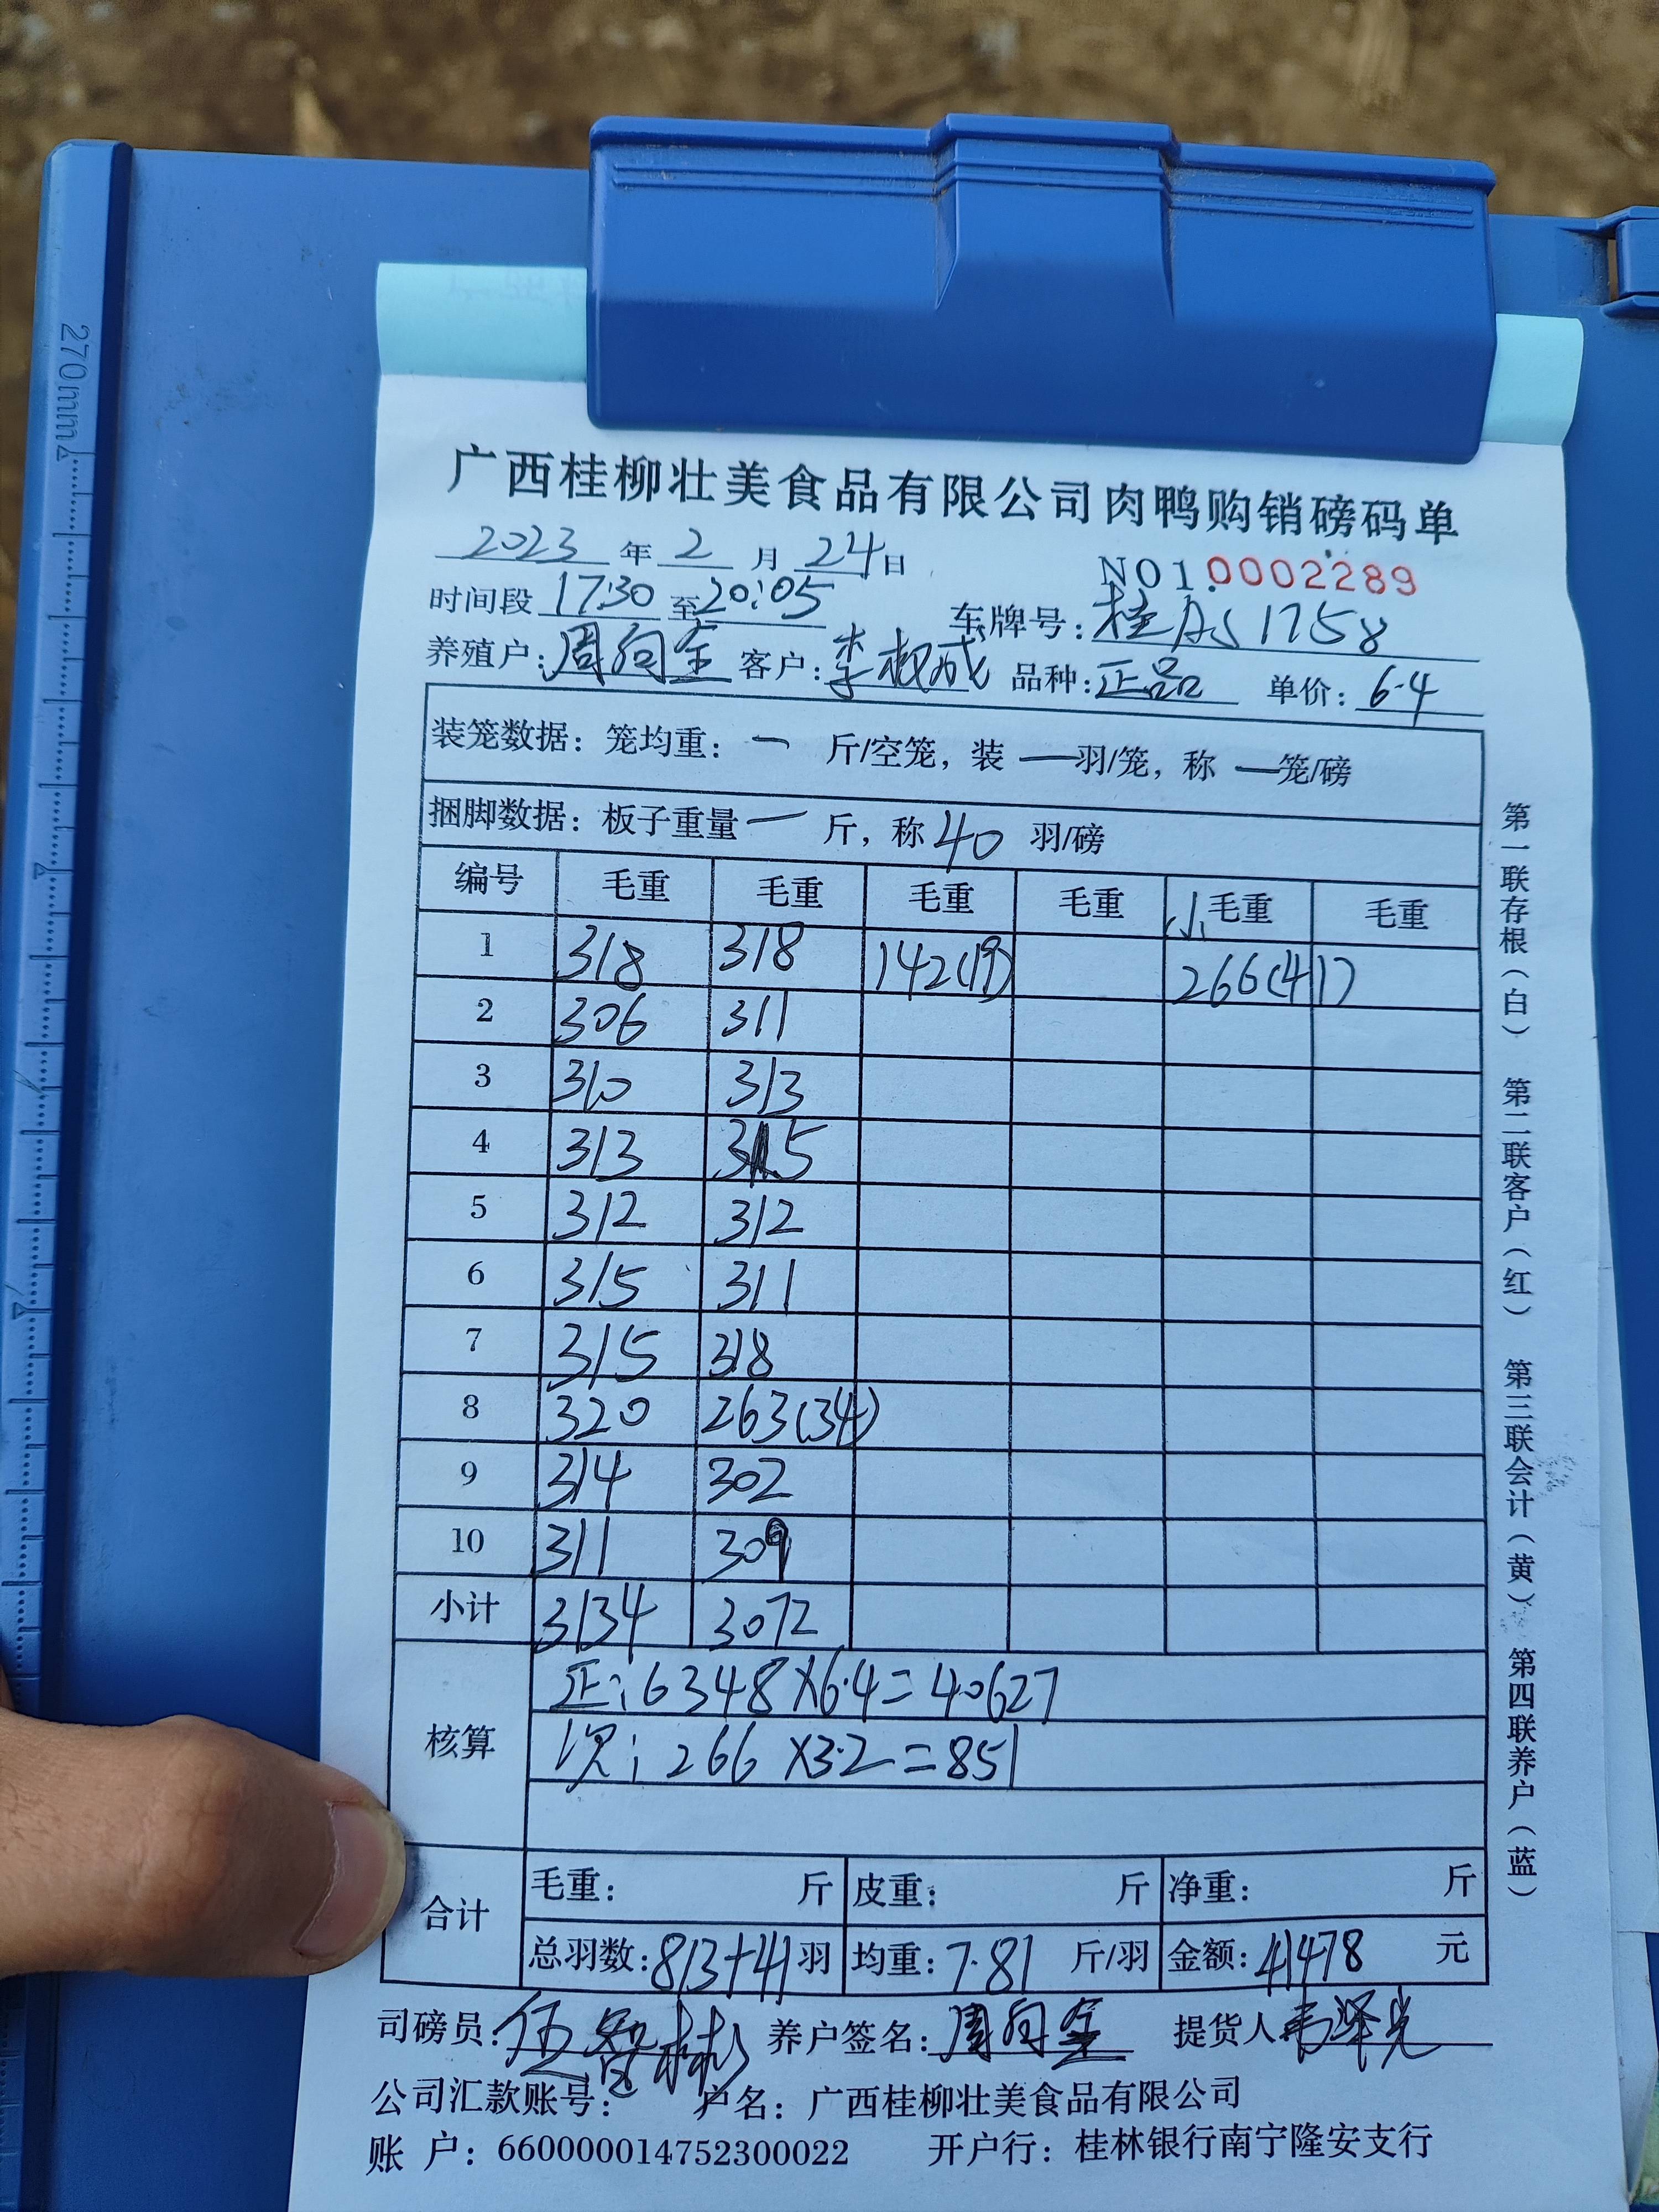 270mm
广西桂柳壮美食品有限公司肉鸭购销磅码单
2023 年 2 月 24 日
NO1.0002289
时间段 17:30 至 20:05 车牌号: 桂 1758
养殖户: 周向金 客户: 李权成 品种: 正品 单价: 6.4
装笼数据: 笼均重: 一 斤/空笼, 装 一 羽/笼, 称 一 笼/磅
捆脚数据: 板子重量 一 斤, 称 40 羽/磅
编号 毛重 毛重 毛重 毛重 小 毛重 毛重
1 318 318 142(19) 266(41)
2 306 311
3 310 313
4 313 315
5 312 312
6 315 311
7 315 318
8 320 263(34)
9 314 302
10 311 309
小计 3134 3072
核算
正: 6348×6.4=40627
次: 266×3.2=851
合计
毛重: 斤 皮重: 斤 净重: 斤
总羽数: 813+41 羽 均重: 7.81 斤/羽 金额: 41478 元
司磅员: 伍智彬 养户签名: 周向金 提货人 韦泽光
公司汇款账号: 户名: 广西桂柳壮美食品有限公司
账 户: 660000014752300022 开户行: 桂林银行南宁隆安支行
第一联存根(白) 第二联客户(红) 第三联会计(黄) 第四联养户(蓝)